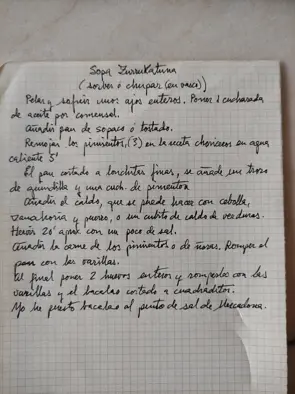 Sopa Zurrukatuna
(sorber ó chupar (en vasco))
Pelar y sofreir unos ajos enteros. Poner 1 cucharada
de aceite por comensal.
Añadir pan de sopaco ó tostado.
Remojar los pimientos, (3) en la receta choriceros en agua
caliente 5'
El pan cortado a lonchitas finas, se añade un trozo
de aguindilla y una cuch. de pimenton
Añadir el caldo, que se puede hacer con cebolla,
zanahoria y puerro, o un cubito de caldo de verduras.
Hervir 20' aprox con un poco de sal.
Añadir la carne de los pimientos o de ñoras. Romper el
pan con las varillas.
Al final poner 2 huevos enteros y romperlos con las
varillas y el bacalao cortado a cuadraditos.
Yo he puesto bacalao al punto de sal de Mercadona.